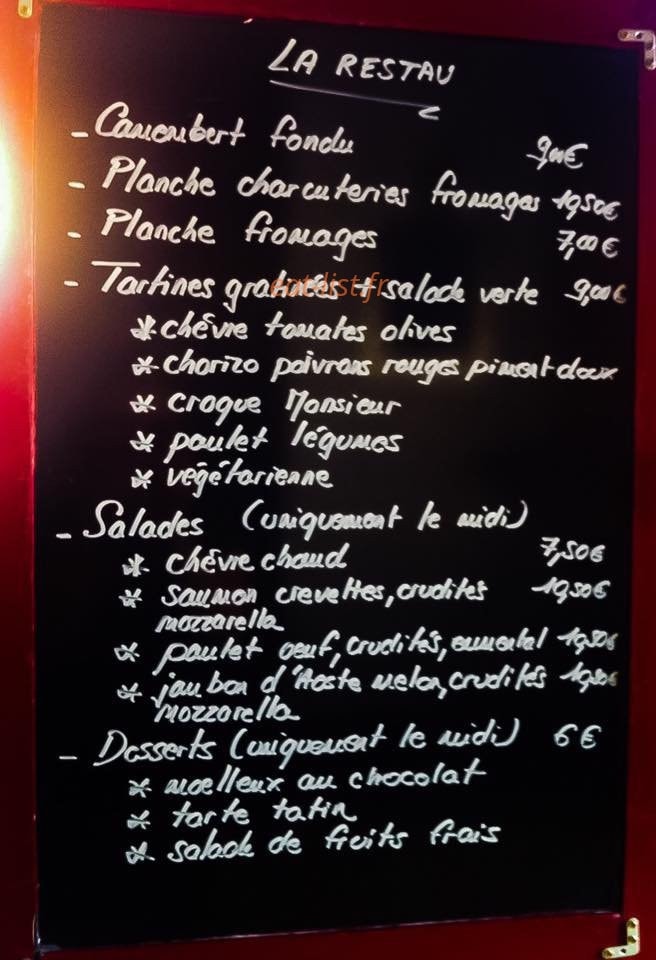 LA RESTAU
- Camembert fondu 9,00€
- Planche charcuteries fromages 10,50€
- Planche fromages 7,00€
- Tartines gratinées + salade verte 9,00€
eatalist.fr
* chèvre tomates olives
* chorizo poivrons rouges piment doux
* croque Monsieur
* poulet légumes
* végétarienne
- Salades (uniquement le midi)
* chèvre chaud 7,50€
* saumon crevettes, crudités 10,50€
mozzarella
* poulet oeuf, crudités, emmental 10,50€
* jambon d'Aoste melon, crudités 10,50€
mozzarella
- Desserts (uniquement le midi) 6€
* moelleux au chocolat
* tarte tatin
* salade de fruits frais